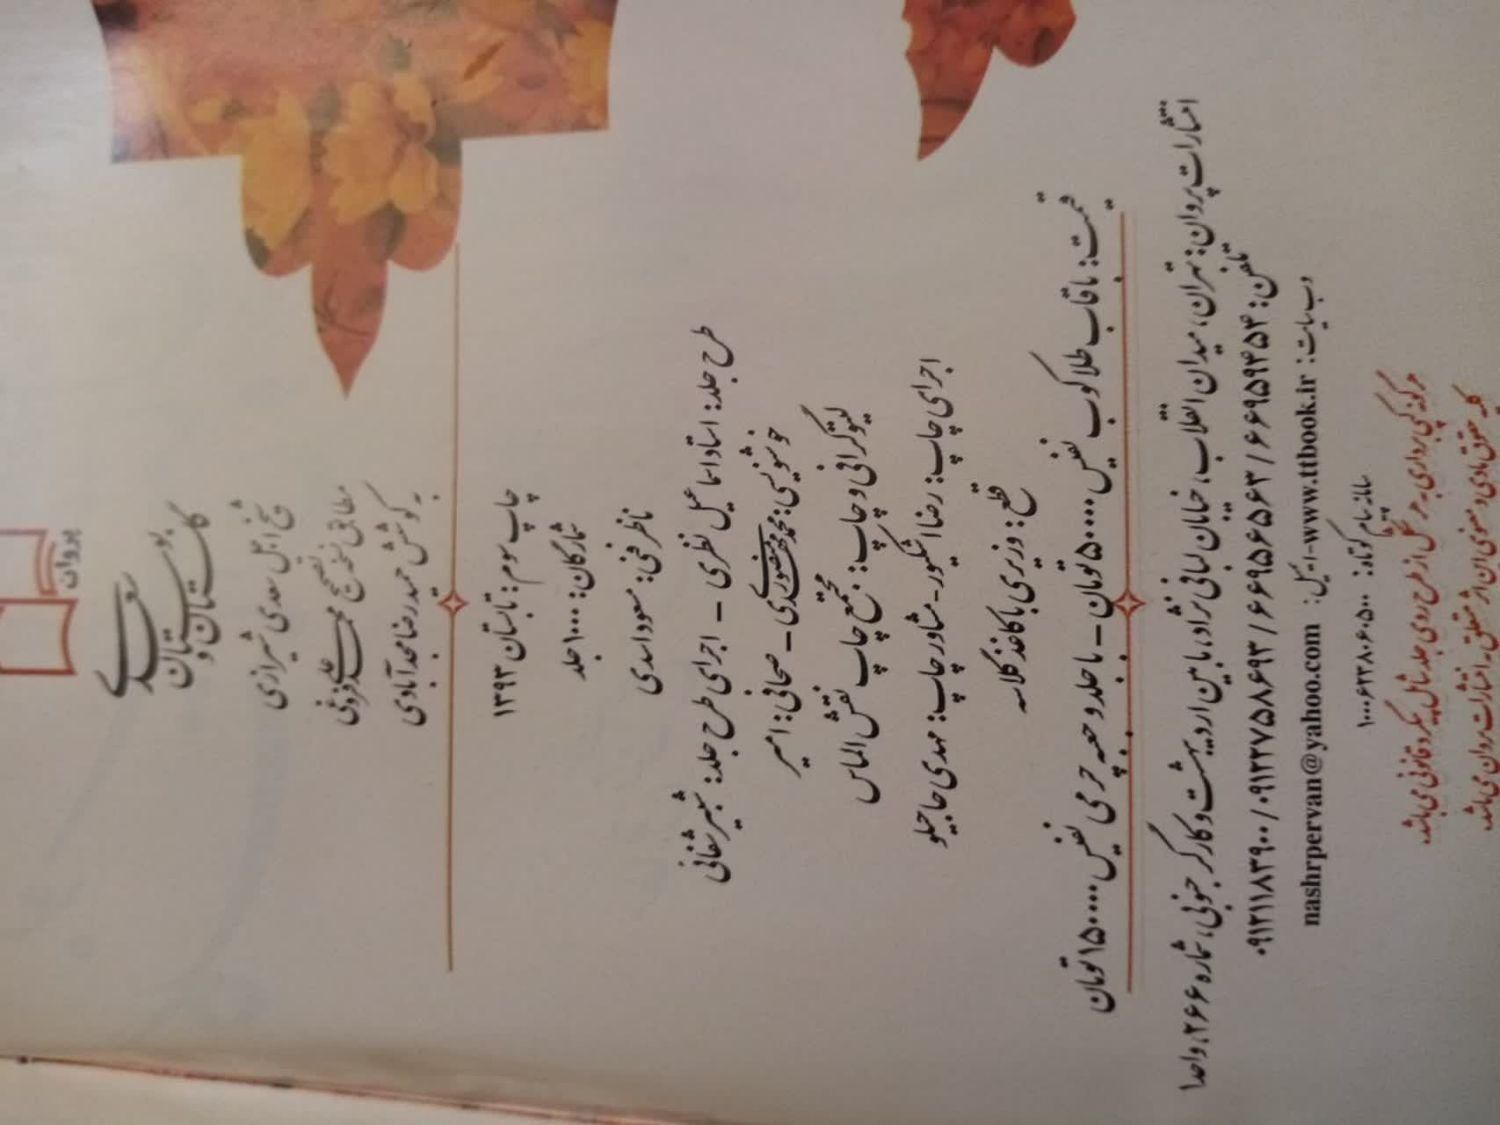 پروان
سعدی
بوستان
و
گلستان
شیخ اجل سعدی شیرازی
مطابق نسخه تصحیح محمدعلی فروغی
به کوشش حمیدرضا مجدآبادی
چاپ سوم: تابستان ۱۳۹۳
شمارگان: ۱۰۰۰ جلد
ناظر فنی: مسعود اسدی
طرح جلد: استاد اسماعیل نظری - اجرای طرح جلد: شبیر شفائی
خوشنویسی: محمد منصوری - صحافی: امیر
لیتوگرافی و چاپ: مجتمع چاپ نقش الماس
اجرای چاپ: رضا اشکبور - مشاور چاپ: مهدی حاجیلو
قطع: وزیری با کاغذ گلاسه
قیمت: با قاب طلاکوب نفیس ۵۰۰۰۰ تومان - با جلد و جعبه چرمی نفیس ۱۵۰۰۰۰ تومان
انتشارات پروان: تهران، میدان انقلاب، خیابان لبافی نژاد، مابین اردیبهشت و کارگر جنوبی، شماره ۲۶۶، واحد۱
تلفن: ۶۶۹۵۹۴۵۳ / ۶۶۹۵۶۵۶۳ / ۰۹۱۲۲۷۵۸۶۹۳ / ۰۹۱۲۱۱۸۳۹۰۰
وب سایت: www.ttbook.ir-ایمیل: nashrpervan@yahoo.com
سامانه پیام کوتاه: ۱۰۰۰۶۲۳۸۰۶۰۵۰۰
هرگونه کپی برداری به هر شکل از طرح روی جلد شامل پیگرد قانونی می‌باشد.
کلیه حقوق مادی و معنوی این اثر متعلق به انتشارات پروان می‌باشد.